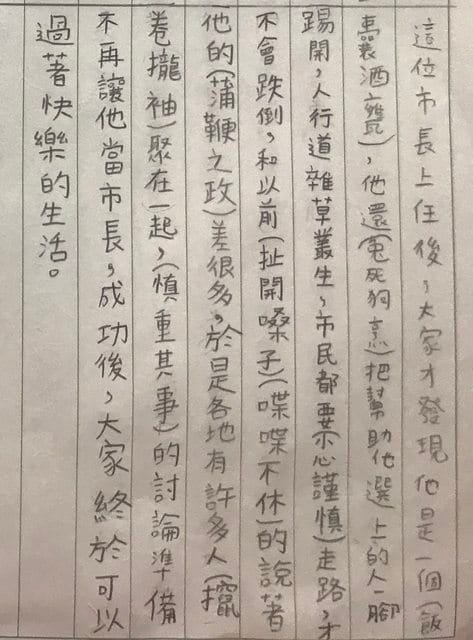 這位市長上任後，大家才發現他是一個(飯
囊酒甕)，他還(兔死狗烹)把幫助他選上的人一腳
踢開，人行道雜草叢生，市民都要(小心謹慎)走路，才
不會跌倒，和以前(扯開嗓子)(喋喋不休)的說著
他的(蒲鞭之政)差很多。於是各地有許多人(
卷攏袖)聚在一起，(慎重其事)的討論準備
不再讓他當市長，成功後，大家終於可以
過著快樂的生活。